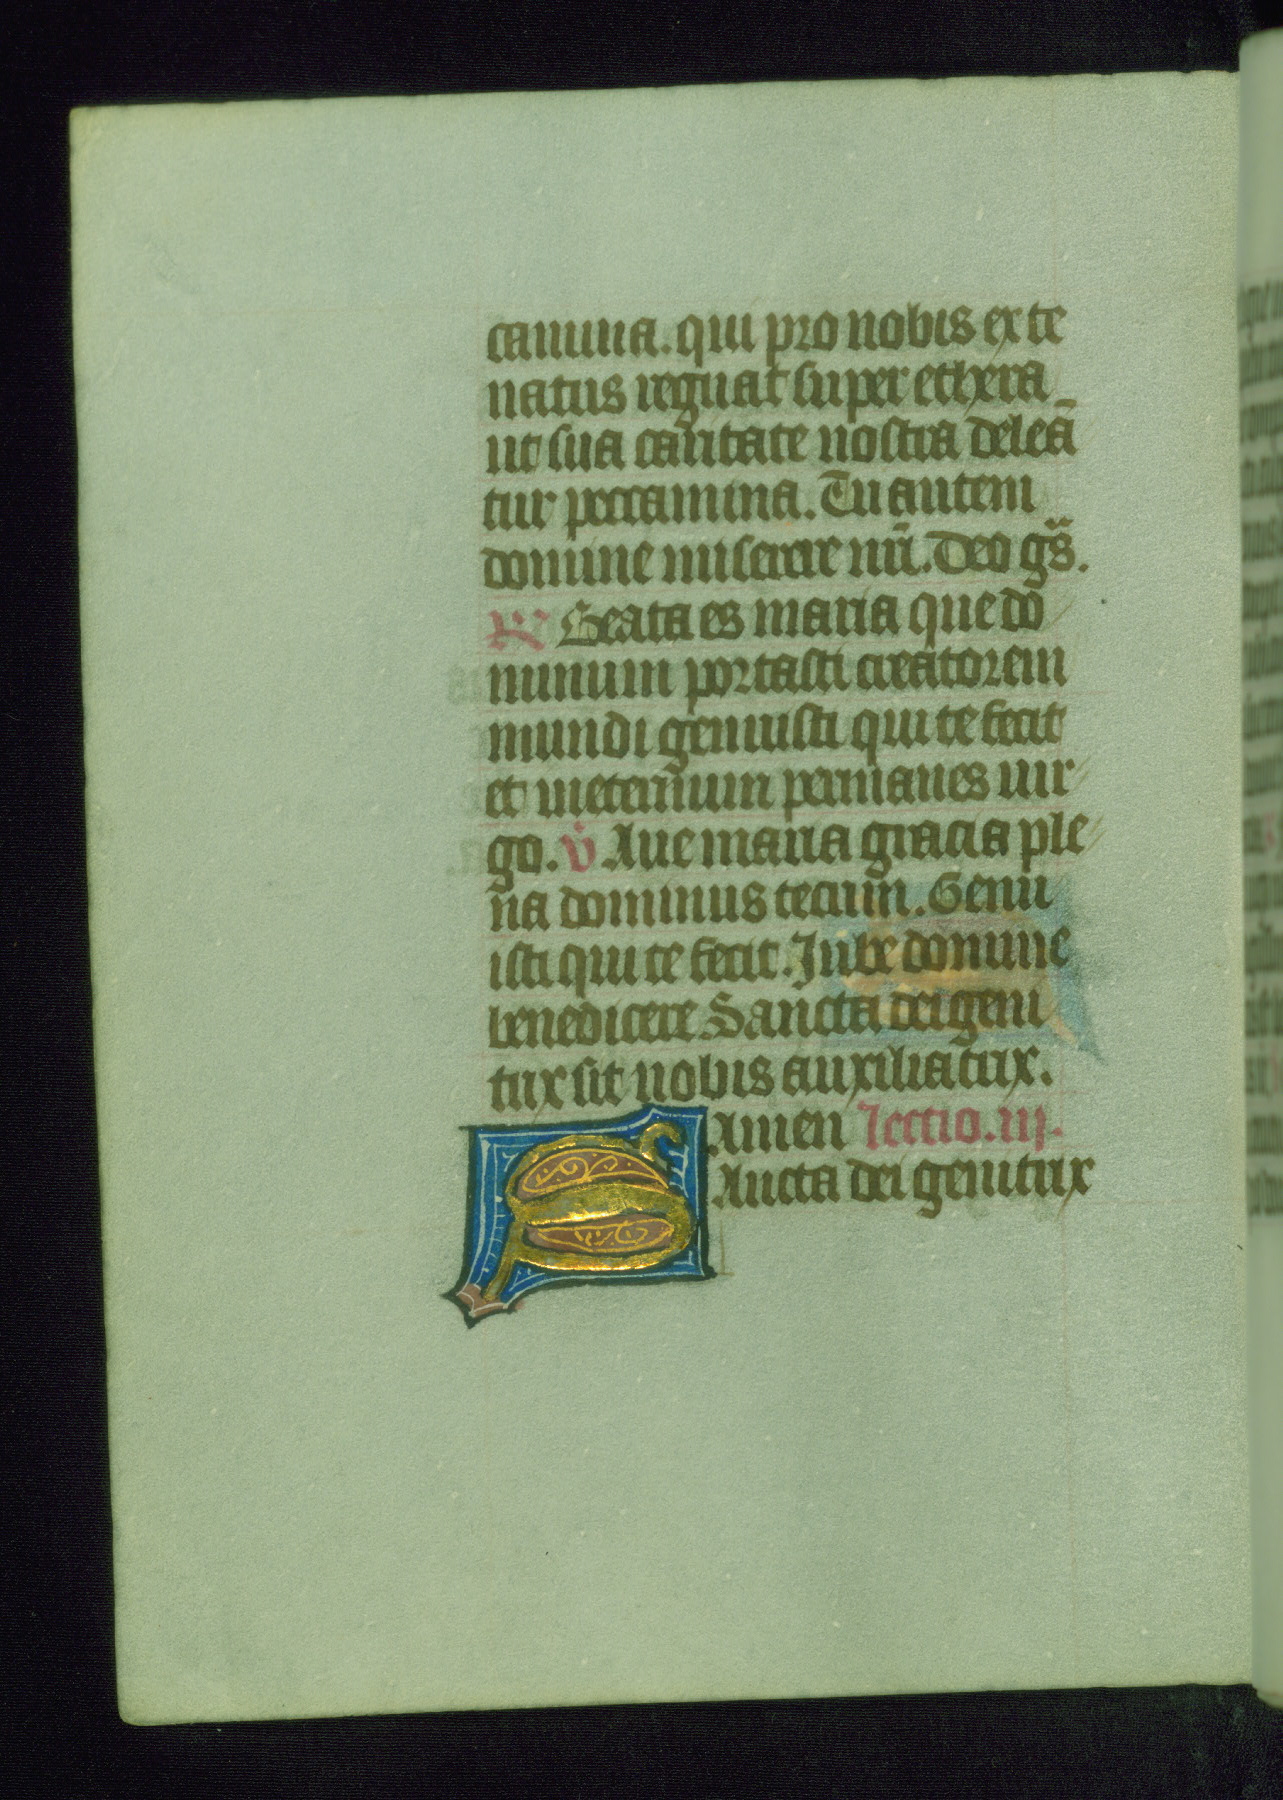 camina. qui pro nobis ex te
natus regnat super ethera
ut sua caritate nostra deleā
tur peccamina. Tu autem
domine miserere nr̄i. Deo gr̄s.
R Beata es maria que do
minum portasti creatorem
mundi genuisti qui te fecit
et in eternum permanes uir
go. v Aue maria gracia ple
na dominus tecum. Genu
isti qui te fecit. Jube domne
benedicere Sancta dei geni
trix sit nobis auxiliatrix.
Amen lectio. iij.
Sancta dei genitrix